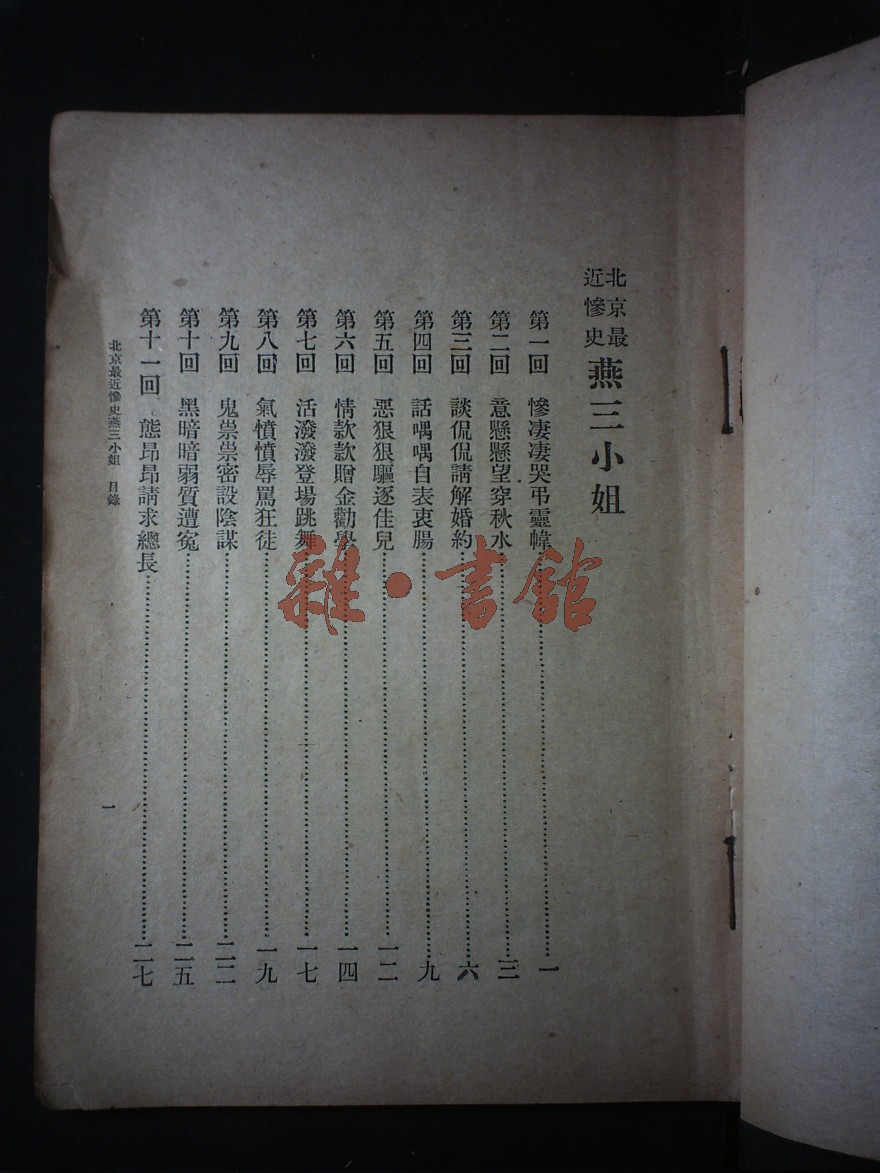 北京最近慘史 燕三小姐
第一回 慘凄凄哭弔靈幃 一
第二回 意懸懸望穿秋水 三
第三回 談侃侃請解婚約 六
第四回 話喁喁自表衷腸 九
第五回 惡狠狠驅逐佳兒 一二
第六回 情款款贈金勸學 一四
第七回 活潑潑登場跳舞 一七
第八回 氣憤憤辱罵狂徒 一九
第九回 鬼祟祟密設陰謀 二二
第十回 黑暗暗弱質遭寃 二五
第十一回 態昂昂請求總長 二七
北京最近慘史燕三小姐 目錄
一
雜·書館